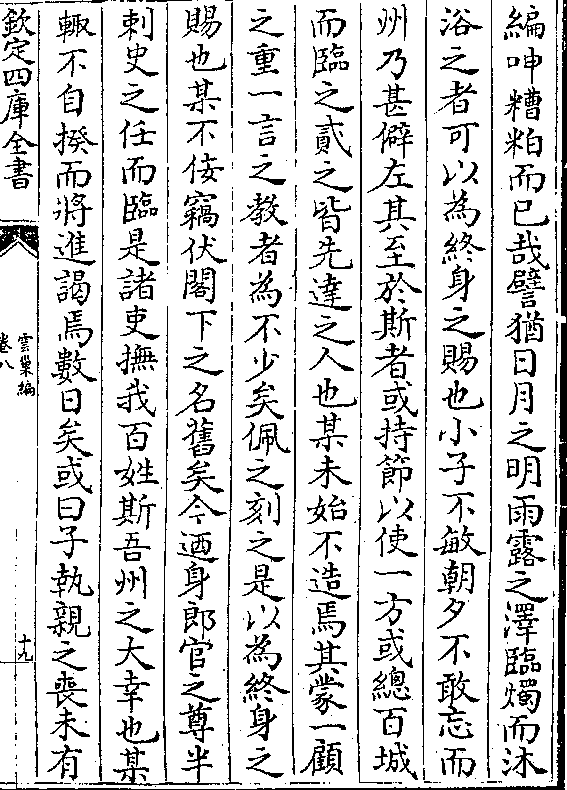 編呻糟粕而已哉譬猶日月之明雨露之澤臨燭而沐
浴之者可以為終身之賜也小子不敏朝夕不敢忘而
州乃甚僻左其至於斯者或持節以使一方或總百城
而臨之貳之皆先達之人也某未始不造焉其蒙一顧
之重一言之教者為不少矣佩之刻之是以為終身之
賜也某不佞竊伏閣下之名舊矣今迺身郎官之尊半
刺史之任而臨是諸吏撫我百姓斯吾州之大幸也某
輙不自揆而將進謁焉數日矣或曰子執親之喪未有
欽定四庫全書
雲巢編
卷八
十九